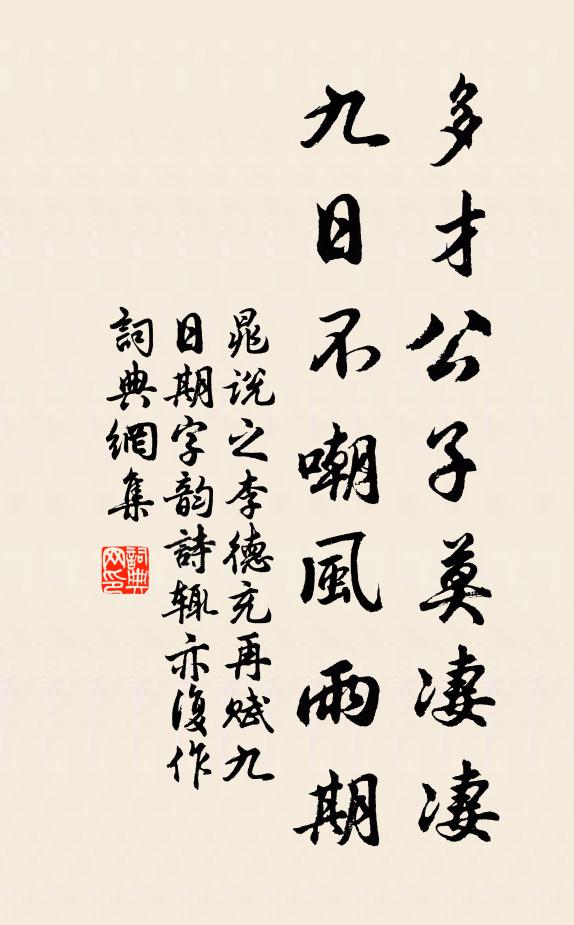 多才公子莫凄凄
九日不嘲風雨期
晁说之李德充再赋九
日期字韵詩輙亦復作
詞典網集
詞典网印